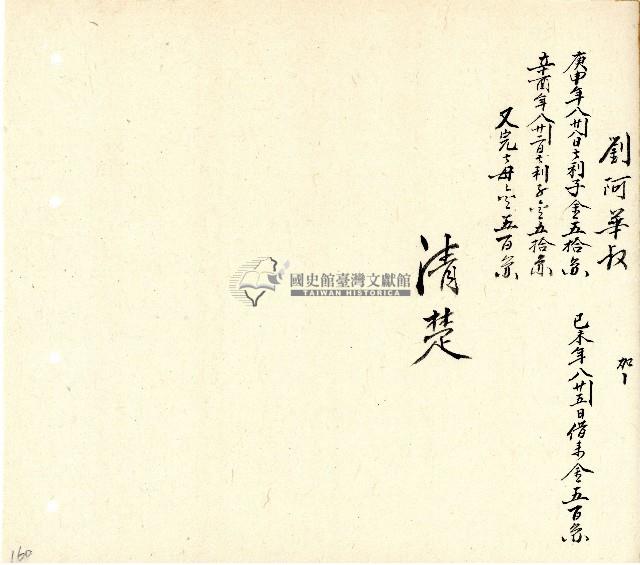 劉阿華叔
加一
己未年八月廿五日借來金五百円
庚申年八月廿八日亡利子金五拾円
辛酉年八月廿二日亡利子金五拾円
又完亡母金五百円
清楚
國史館臺灣文獻館
TAIWAN HISTORICA
160